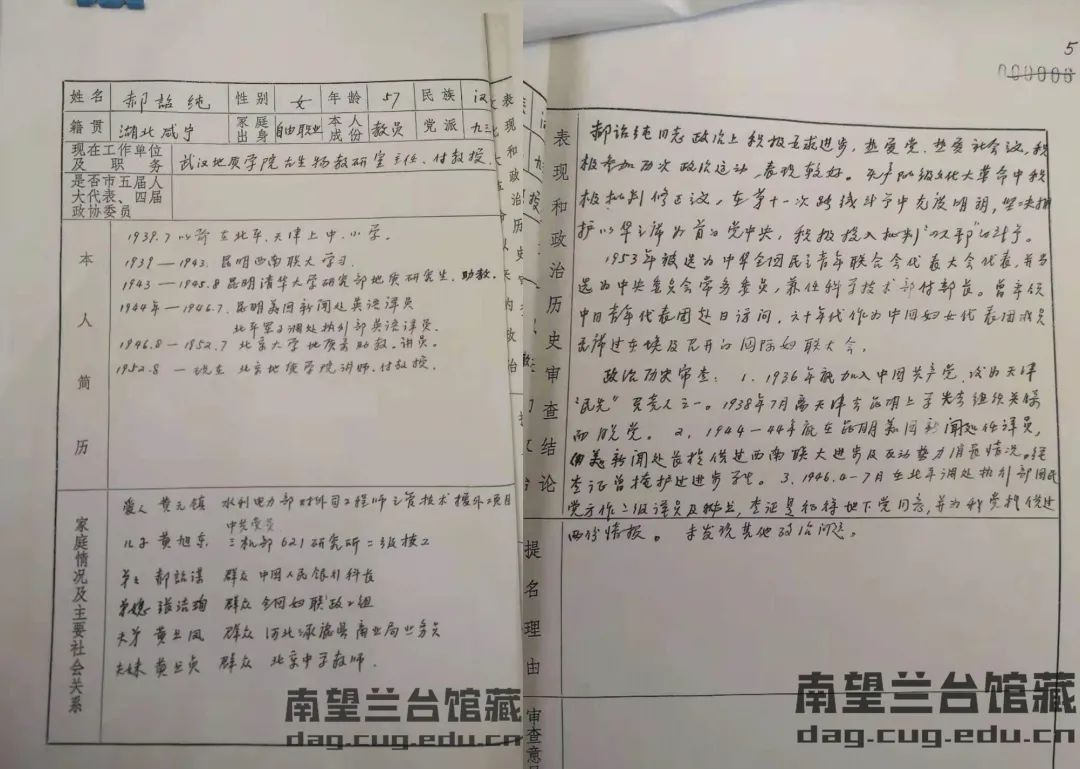 姓名 郝詒纯 性别 女 年龄 57 民族 汉
籍贯 湖北咸宁 家庭出身 自由职业 本人成份 教员 党派 九三
现在工作单位及职务 武汉地质学院古生物教研室主任、付教授.
是否市五届人大代表、四届政协委员
本人简历
1939.7以前在北平、天津上中、小学。
1939—1943. 昆明西南联大学习.
1943—1945.8 昆明清华大学研究部地质研究生、助教.
1944年—1946.7. 昆明美国新闻处英语译员
北平军子调处执行部英语译员.
1946.8—1952.7 北京大学地质系助教、讲员.
1952.8 —现在 北京地质学院讲师、付教授.
家庭情况及主要社会关系
爱人 黄元镇 水利电力部对外司工程师主管技术援外项目
中共党员
儿子 黄旭东 三机部621研究所二级技工
弟 郝詒谋 群众 中国人民银行科长
弟媳 张洁珣 群众 全国妇联政工组
夫弟 黄旦凤 群众 河北承德县商业局业务员
夫妹 黄旦贞 群众 北京中学教师.
南望兰台馆藏
dag.cug.edu.cn
5
000000
表现和政治历史审查结论
郝诒纯同志政治上积极要求进步,热爱党、热爱社会主义,积
极参加历次政治运动,表现较好。无产阶级文化大革命中积
极批判修正主义,在第十一次路线斗争中态度明朗,坚决拥
护以华主席为首的党中央,积极投入批判"四人邦"的斗争。
1953年被选为中华全国民主青年联合会代表大会代表,并当
选为中央委员会常务委员,兼任科学技术部付部长。曾率领
中日青年代表团赴日访问,六十年代作为中国妇女代表团成员
出席过在埃及召开的国际妇联大会.
政治历史审查: 1. 1936年底加入中国共产党,
"民先"负责人之一。1938年7月离天津去昆明上学
而脱党。 2. 1944—44年底在昆明美国新闻处任译员,
向美新闻处长提供过西南联大进步及反动势力消长情况。经
查证曾掩护过进步学生。 3. 1946.4—7月在北平调处执行部国民
党方作二级译员及
未发现其他政治问题。
提名理由
审查意见
南望兰台馆藏
dag.cug.edu.cn